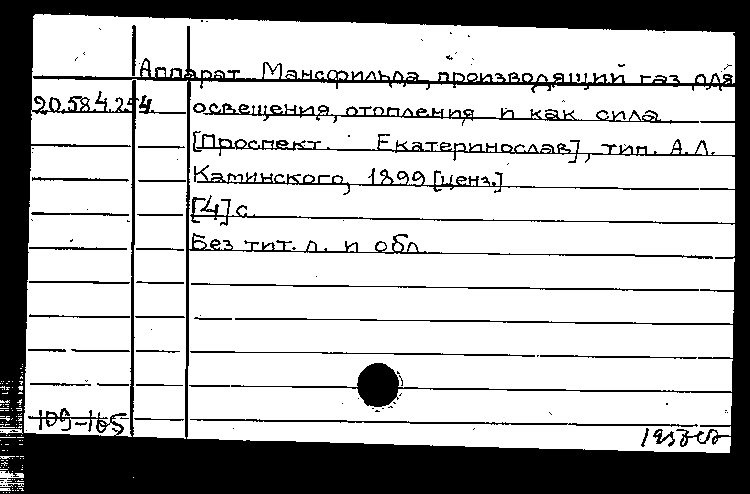 Аппарат Мансфильда, производящий газ для
20.58.4.254 освещения, отопления и как сила.
[Проспект. Екатеринослав], тип. А.Л.
Каминского, 1899 [ценз.]
[4] с.
Без тит. л. и обл.
109-165